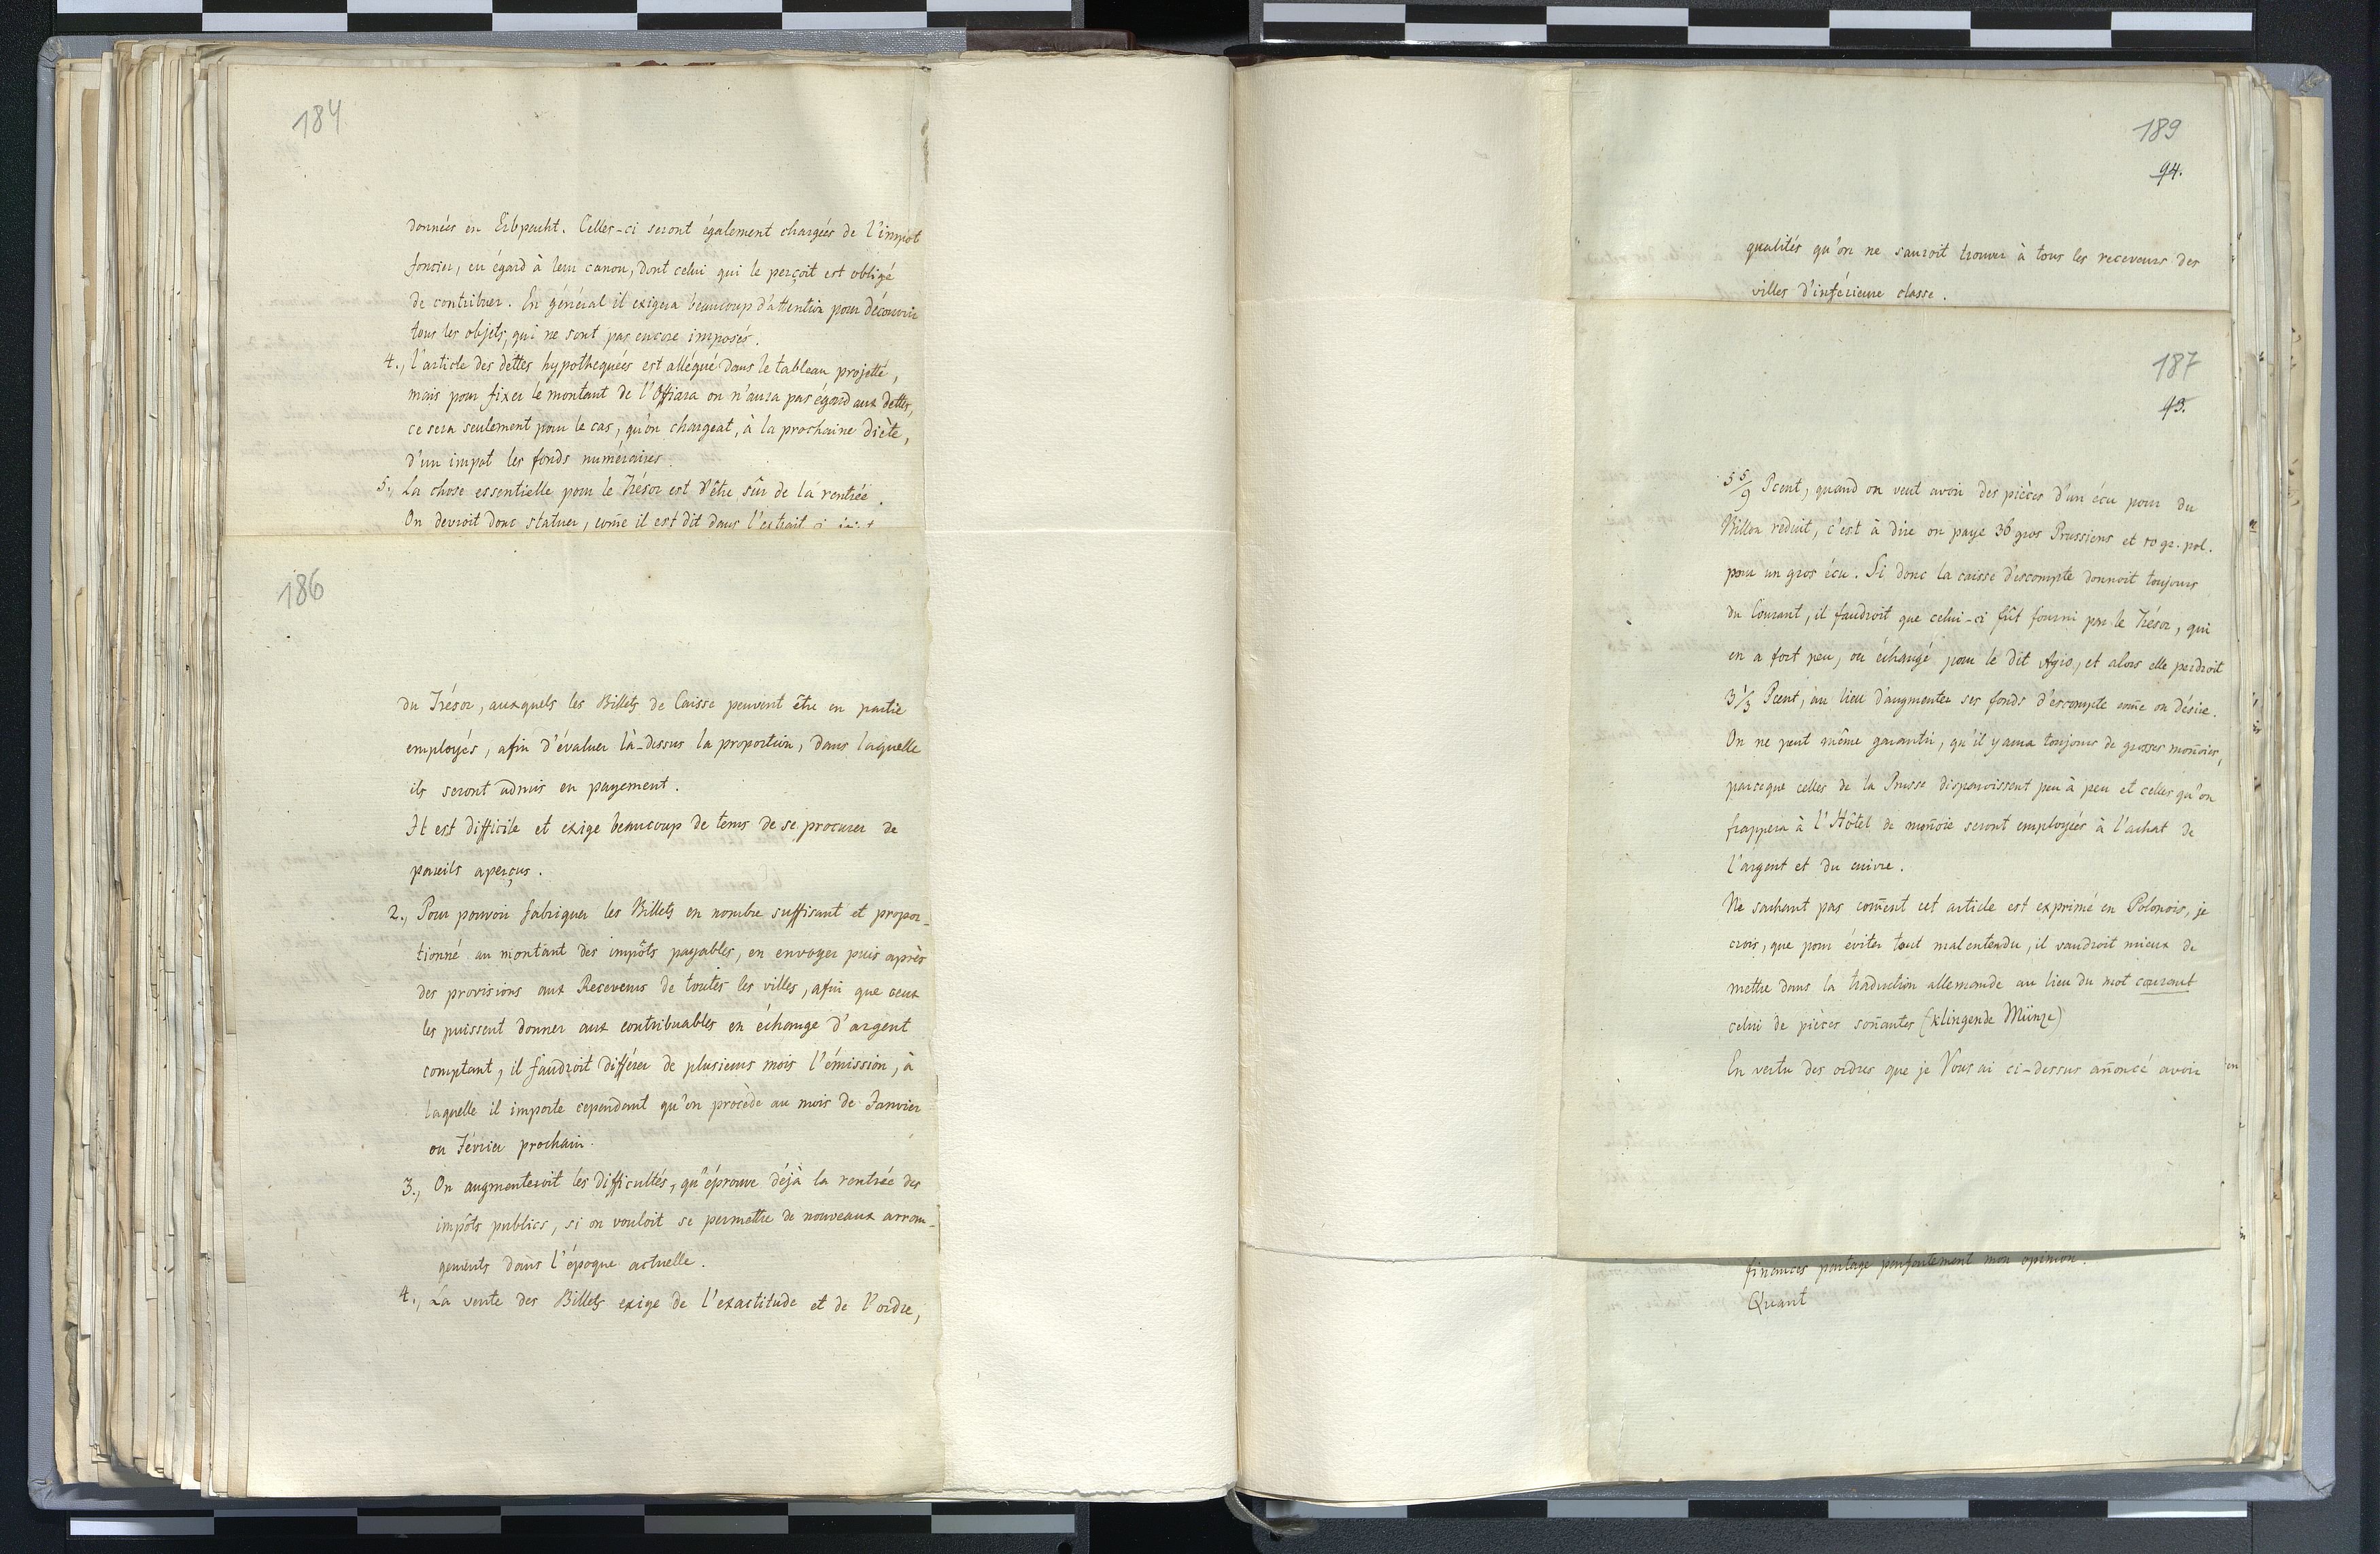 184
données en Erbpacht. Celles-ci seront également chargées de l'impot
foncier, eu égard à leur canon, dont celui qui le perçoit est obligé
de contribuer. En général il exigera beaucoup d'attention pour découvrir
tous les objets, qui ne sont pas encore imposés.
4., l'article des dettes hypothequées est allégué dans le tableau projetté,
mais pour fixer le montant de l'Offiara on n'aura pas égard aux dettes,
ce sera seulement pour le cas, qu'on chargeat, à la prochaine diète,
d'un impot les fonds numéraires.
5., La chose essentielle pour le Trésor est d'être sûr de la rentrée.
On devroit donc statuer, com̄e il est dit dans l'extrait
186
du Trésor, auxquels les Billets de Caisse peuvent être en partie
employés, afin d'évaluer là-dessus la proportion, dans laquelle
ils seront admis en payement.
Il est difficile et exige beaucoup de tems de se procurer de
pareils aperçus.
2., Pour pouvoir fabriquer les Billets en nombre suffisant et propor-
tionné au montant des impôts payables, en envoyer puis après
des provisions aux Receveurs de toutes les villes, afin que ceux
les puissent donner aux contribuables en échange d'argent
comptant, il faudroit différer de plusieurs mois l'émission, à
laquelle il importe cependant qu'on procède au mois de Janvier
ou Février prochain.
3., On augmenteroit les difficultés, qu'éprouve déjà la rentrée des
impôts publics, si on vouloit se permettre de nouveaux arran-
gements dans l'époque actuelle.
4., La vente des Billets exige de l'exactitude et de l'ordre,
189
94.
qualités qu'on ne sauroit trouver à tous les receveurs des
villes d'inférieure classe.
187
93.
5 5/9 Pcent, quand on veut avoir des pièces d'un écu pour du
Billon reduit, c'est à dire on paye 36 gros Prussiens et 10 gr. pol.
pour un gros écu. Si donc la caisse d'escompte donnoit toujours
du Courant, il faudroit que celui-ci fût fourni par le Trésor, qui
en a fort peu, ou échangé pour le dit Agio, et alors elle perdroit
3 1/3 Pcent, au lieu d'augmenter ses fonds d'escompte com̄e on désire.
On ne peut même garantir, qu'il y aura toujours de grosses mon̄oies,
parceque celles de la Prusse disparoissent peu à peu et celles qu'on
frappera à l'Hôtel de mon̄oie seront employées à l'achat de
l'argent et du cuivre.
Ne sachant pas com̄ent cet article est exprimé en Polonois, je
crois, que pour éviter tout malentendu, il vaudroit mieux de
mettre dans la traduction allemande au lieu du mot courant
celui de pièces son̄antes (klingende Münze)
En vertu des ordres que je Vous ai ci-dessus an̄oncé avoir
en
finances partage parfaitement mon opinion.
Quant